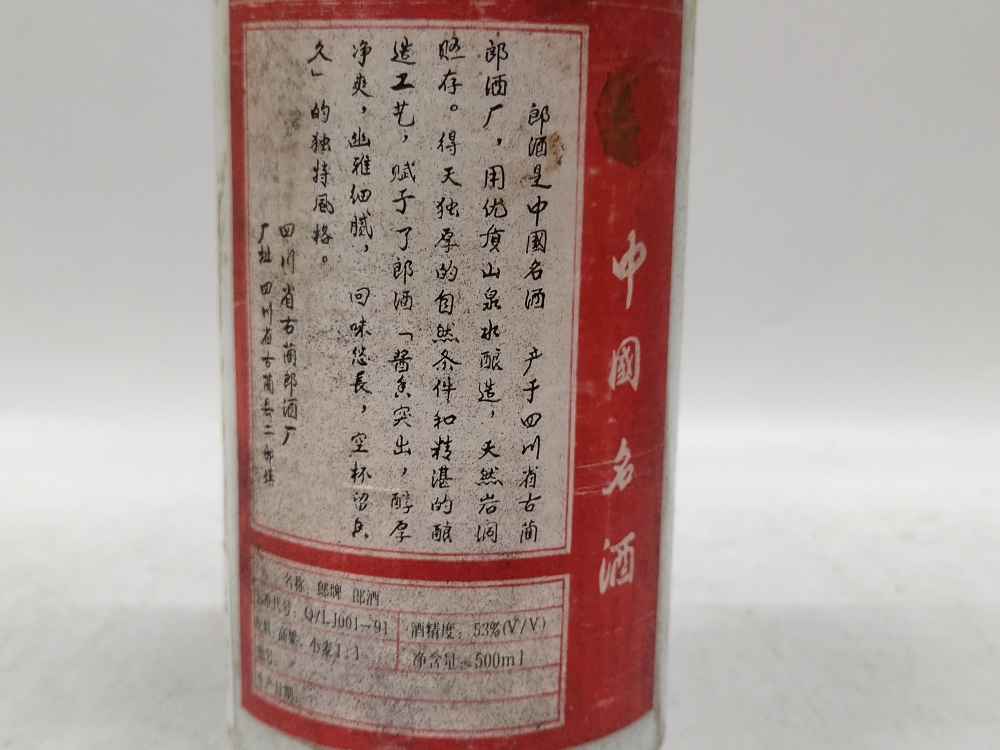 中國名酒
郎酒是中国名酒 产于四川省古蔺
郎酒厂，用优质山泉水酿造，天然岩洞
贮存。得天独厚的自然条件和精湛的酿
造工艺，赋于了郎酒「酱香突出，醇厚
净爽，幽雅细腻，回味悠長，空杯留香
久」的独特风格。
四川省古蔺郎酒厂
厂址 四川省古蔺县二郎镇
名称：郎牌 郎酒
代号：Q/LJ001-91
酒精度：53%(V/V)
高粱、小麦1:1
净含量：500ml
生产日期：